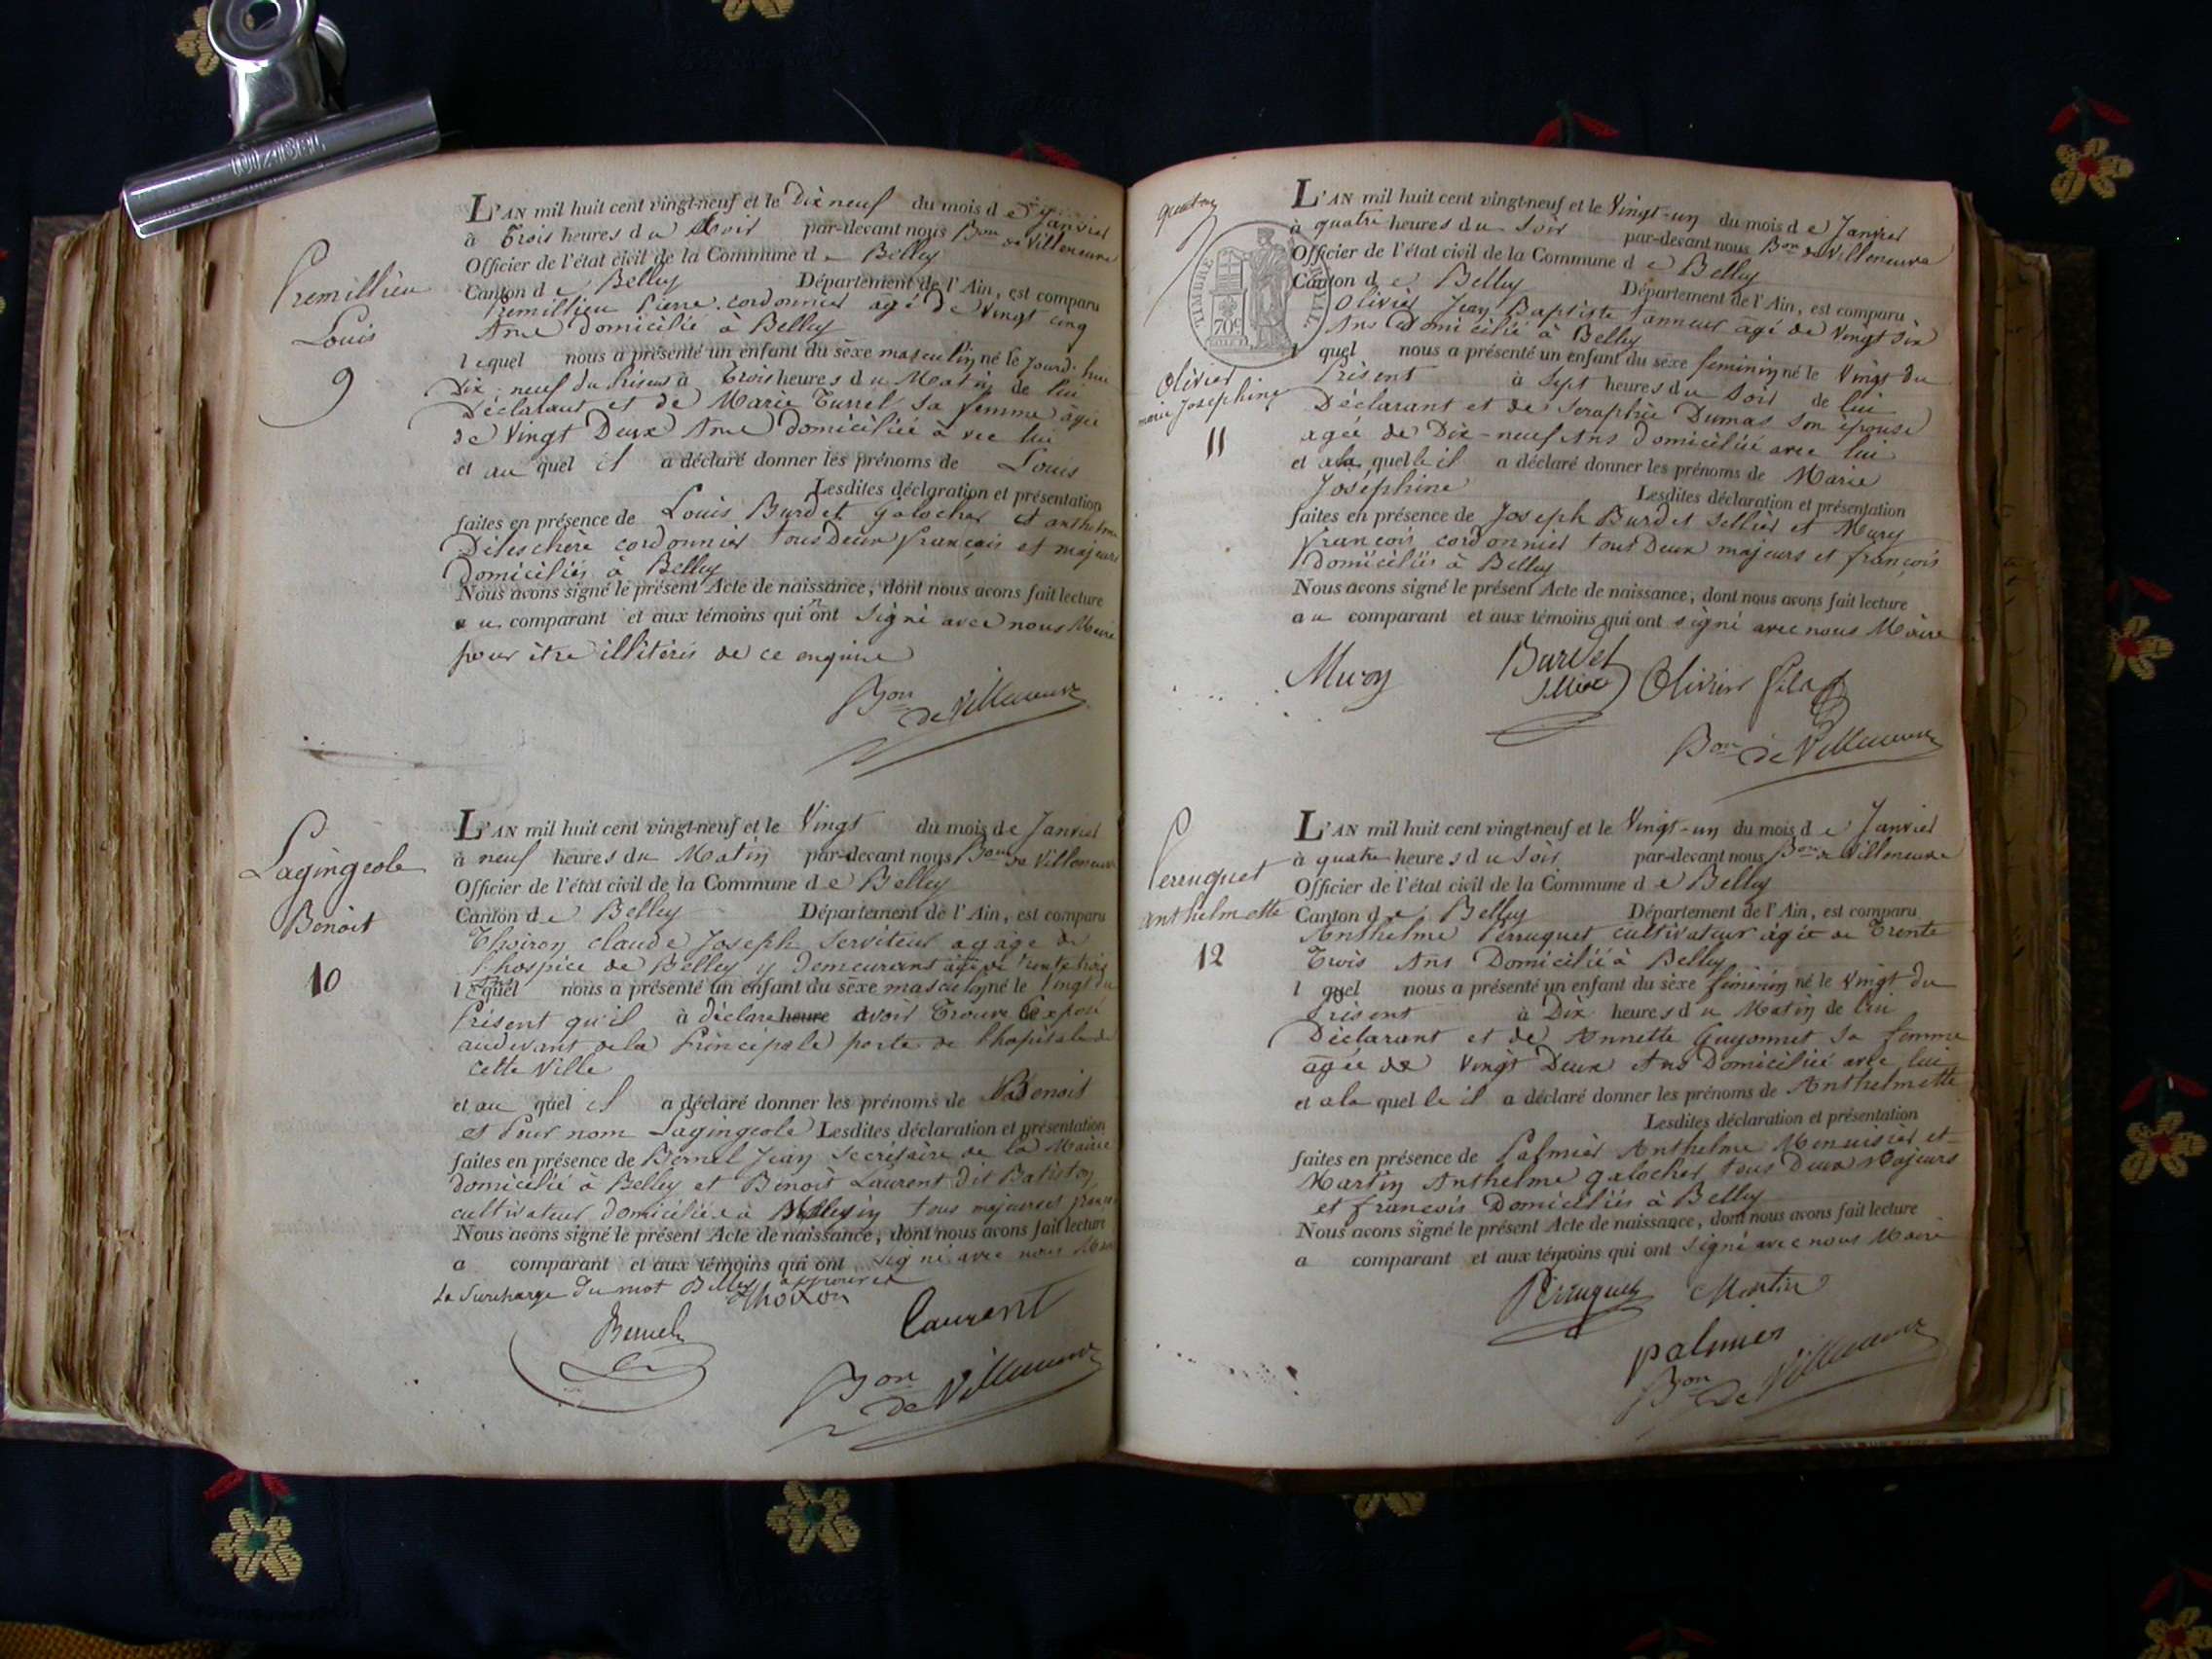 L'AN mil huit cent vingt-neuf et le Dix neuf du mois de Janvier
à Trois heures du Soir par-devant nous Bon de Villeneuve
Officier de l'état civil de la Commune de Belley
Canton de Belley Département de l'Ain, est comparu
Premillieu Pierre cordonnier agé de Vingt cinq
Ans domicilié à Belley
lequel nous a présenté un enfant du sèxe masculin né le jourd'hui
Dix neuf du Présent à Trois heures du Matin de lui
Déclarant et de Marie Turrel Sa femme agée
de Vingt Deux Ans domiciliée avec lui
et au quel il a déclaré donner les prénoms de Louis
Lesdites déclaration et présentation
faites en présence de Louis Burdet galocher et anthelme
cordonnier tous Deux français et majeurs
domiciliés à Belley
Nous avons signé le présent Acte de naissance, dont nous avons fait lecture
au comparant et aux témoins qui n'ont signé avec nous Maire
pour être illiterés de ce enquis
Bon de Villeneuve
Premillieu
Louis
9
L'AN mil huit cent vingt-neuf et le Vingt du mois de Janvier
à neuf heures du Matin par-devant nous Bon de Villeneuve
Officier de l'état civil de la Commune de Belley
Canton de Belley Département de l'Ain, est comparu
claude Joseph Serviteur
l'hospice de Belley y demeurant agé de trente trois
ans
lequel nous a présenté un enfant du sèxe masculin né le Vingt du
Présent qu'il à déclaré heure avoir Trouvé Exposé
audevant de la Principale porte de l'hopital de
cette Ville
et au quel il a déclaré donner les prénoms de Benoit
et pour nom Lagingeole Lesdites déclaration et présentation
faites en présence de Bernel Jean Secrétaire de la Mairie
domicilié à Belley et Benoit Laurent Dit
cultivateur domicilié à tous majeurs et
Nous avons signé le présent Acte de naissance, dont nous avons fait lecture
a comparant et aux témoins qui ont signé avec nous Maire
La Surcharge du mot Belley approuvée
Laurent
Bernel
Bon de Villeneuve
Lagingeole
Benoit
10
L'AN mil huit cent vingt-neuf et le Vingt-un du mois de Janvier
à quatre heures du Soir par-devant nous Bon de Villeneuve
Officier de l'état civil de la Commune de Belley
Canton de Belley Département de l'Ain, est comparu
Olivier Jean Baptiste tanneur agé de Vingt Six
Ans Domicilié à Belley
l quel nous a présenté un enfant du sèxe feminin né le Vingt du
Présent à Sept heures du Soir de lui
Déclarant et de Seraphie Dumas Son épouse
agée de Dix-neuf Ans domiciliée avec lui
et a la quelle il a déclaré donner les prénoms de Marie
Joséphine Lesdites déclaration et présentation
faites en présence de Joseph Burdet Sellier et Mury
françois cordonnier tous Deux majeurs et françois
domiciliés à Belley
Nous avons signé le présent Acte de naissance, dont nous avons fait lecture
au comparant et aux témoins qui ont signé avec nous Maire
Burdet
Sellier
Olivier
Bon de Villeneuve
TIMBRE ROYAL
70c
Olivier
marie Joséphine
11
L'AN mil huit cent vingt-neuf et le Vingt-un du mois de Janvier
à quatre heures du Soir par-devant nous Bon de Villeneuve
Officier de l'état civil de la Commune de Belley
Canton de Belley Département de l'Ain, est comparu
Anthelme Perruquet cultivateur agée de Trente
Trois Ans Domicilié à Belley
l quel nous a présenté un enfant du sèxe féminin né le Vingt du
Présent à Dix heures du Matin de lui
Déclarant et de Annette Guyonnet Sa femme
agée de Vingt Deux Ans Domiciliée avec lui
et a la quelle il a déclaré donner les prénoms de Anthelmette
Lesdites déclaration et présentation
faites en présence de Palmier Anthelme Menuisier et
Martin Anthelme galocher tous Deux Majeurs
et françois Domiciliés à Belley
Nous avons signé le présent Acte de naissance, dont nous avons fait lecture
a comparant et aux témoins qui ont signé avec nous Maire
Perruquet Martin
palmier
Bon de Villeneuve
Perruquet
anthelmette
12